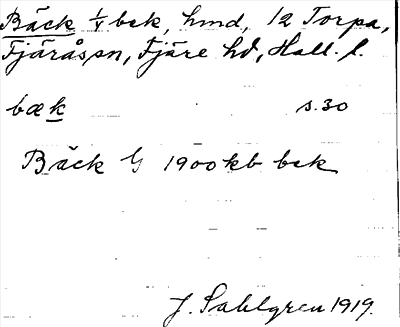 Bäck ¼ bek, hmd, 12 Torpa,
Fjärås sn, Fjäre hd, Hall. l.
bæk s. 30
Bäck ¼ 1900 kb bek
J. Sahlgren 1919.